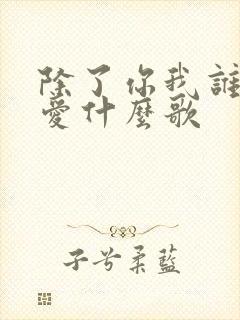 除了你我誰
愛什麼歌
子兮柔藍